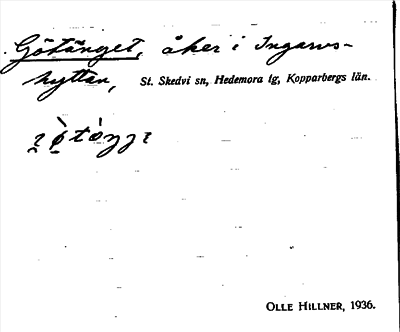 Götänget, åker i Ingarvs-
hyttan, St. Skedvi sn, Hedemora tg, Kopparbergs län.
OLLE HILLNER, 1936.